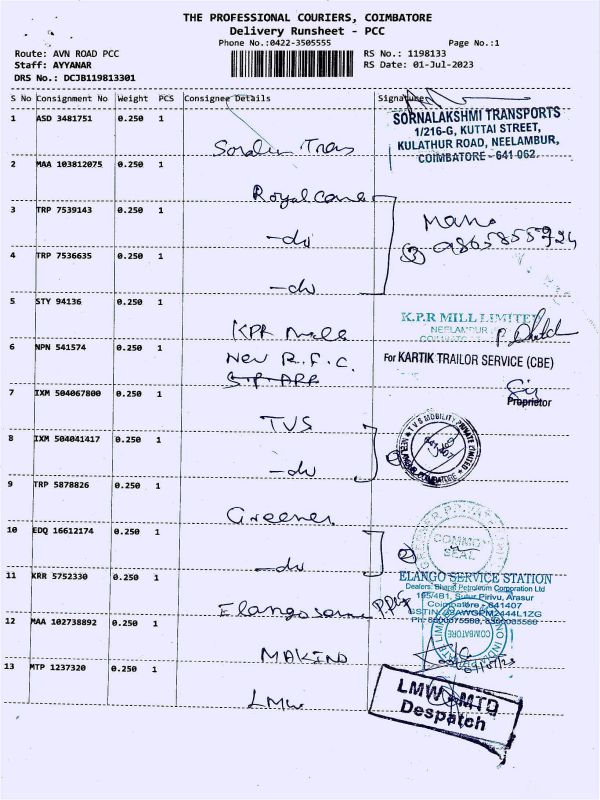 THE PROFESSIONAL COURIERS, COIMBATORE
Delivery Runsheet - PCC
Phone No.:0422-3505555 Page No.:1
Route: AVN ROAD PCC RS No.: 1198133
Staff: AYYANAR RS Date: 01-Jul-2023
DRS No.: DCJB119813301
S No Consignment No Weight PCS Consignee Details Signature
1 ASD 3481751 0.250 1
SORNALAKSHMI TRANSPORTS
1/216-G, KUTTAI STREET,
KULATHUR ROAD, NEELAMBUR,
COIMBATORE - 641 062.
2 MAA 103812075 0.250 1
Royal care
3 TRP 7539143 0.250 1
-do
Mano
3
4 TRP 7536635 0.250 1
-do
5 STY 94136 0.250 1
K.P.R MILL LIMITED
KPR Mill
6 NPN 541574 0.250 1
New R.F.C.
For KARTIK TRAILOR SERVICE (CBE)
Proprietor
7 IXM 504067800 0.250 1
TVS
TVS MOBILITY PRIVATE LIMITED
8 IXM 504041417 0.250 1
-do
9 TRP 5878826 0.250 1
Greenex
10 EDQ 16612174 0.250 1
-do
2
COMMON
SEAL
11 KRR 5752330 0.250 1
ELANGO SERVICE STATION
Dealers: Bharat Petroleum Corporation Ltd
195/4B1, Sulur Pirivu, Arasur
Coimbatore - 641407
12 MAA 102738892 0.250 1
MAKINO
COIMBATORE
13 MTP 1237320 0.250 1
LMW
LMW - MTD
Despatch